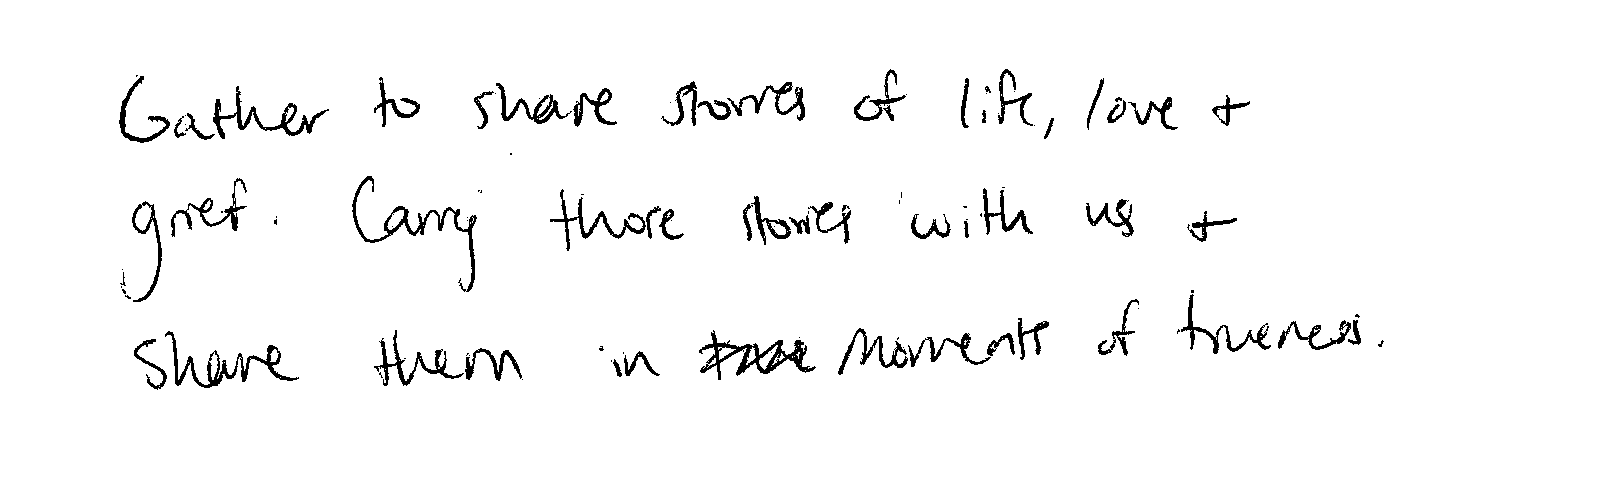 Gather to share stories of life, love +
grief. Carry those stories with us +
share them in moments of trueness.